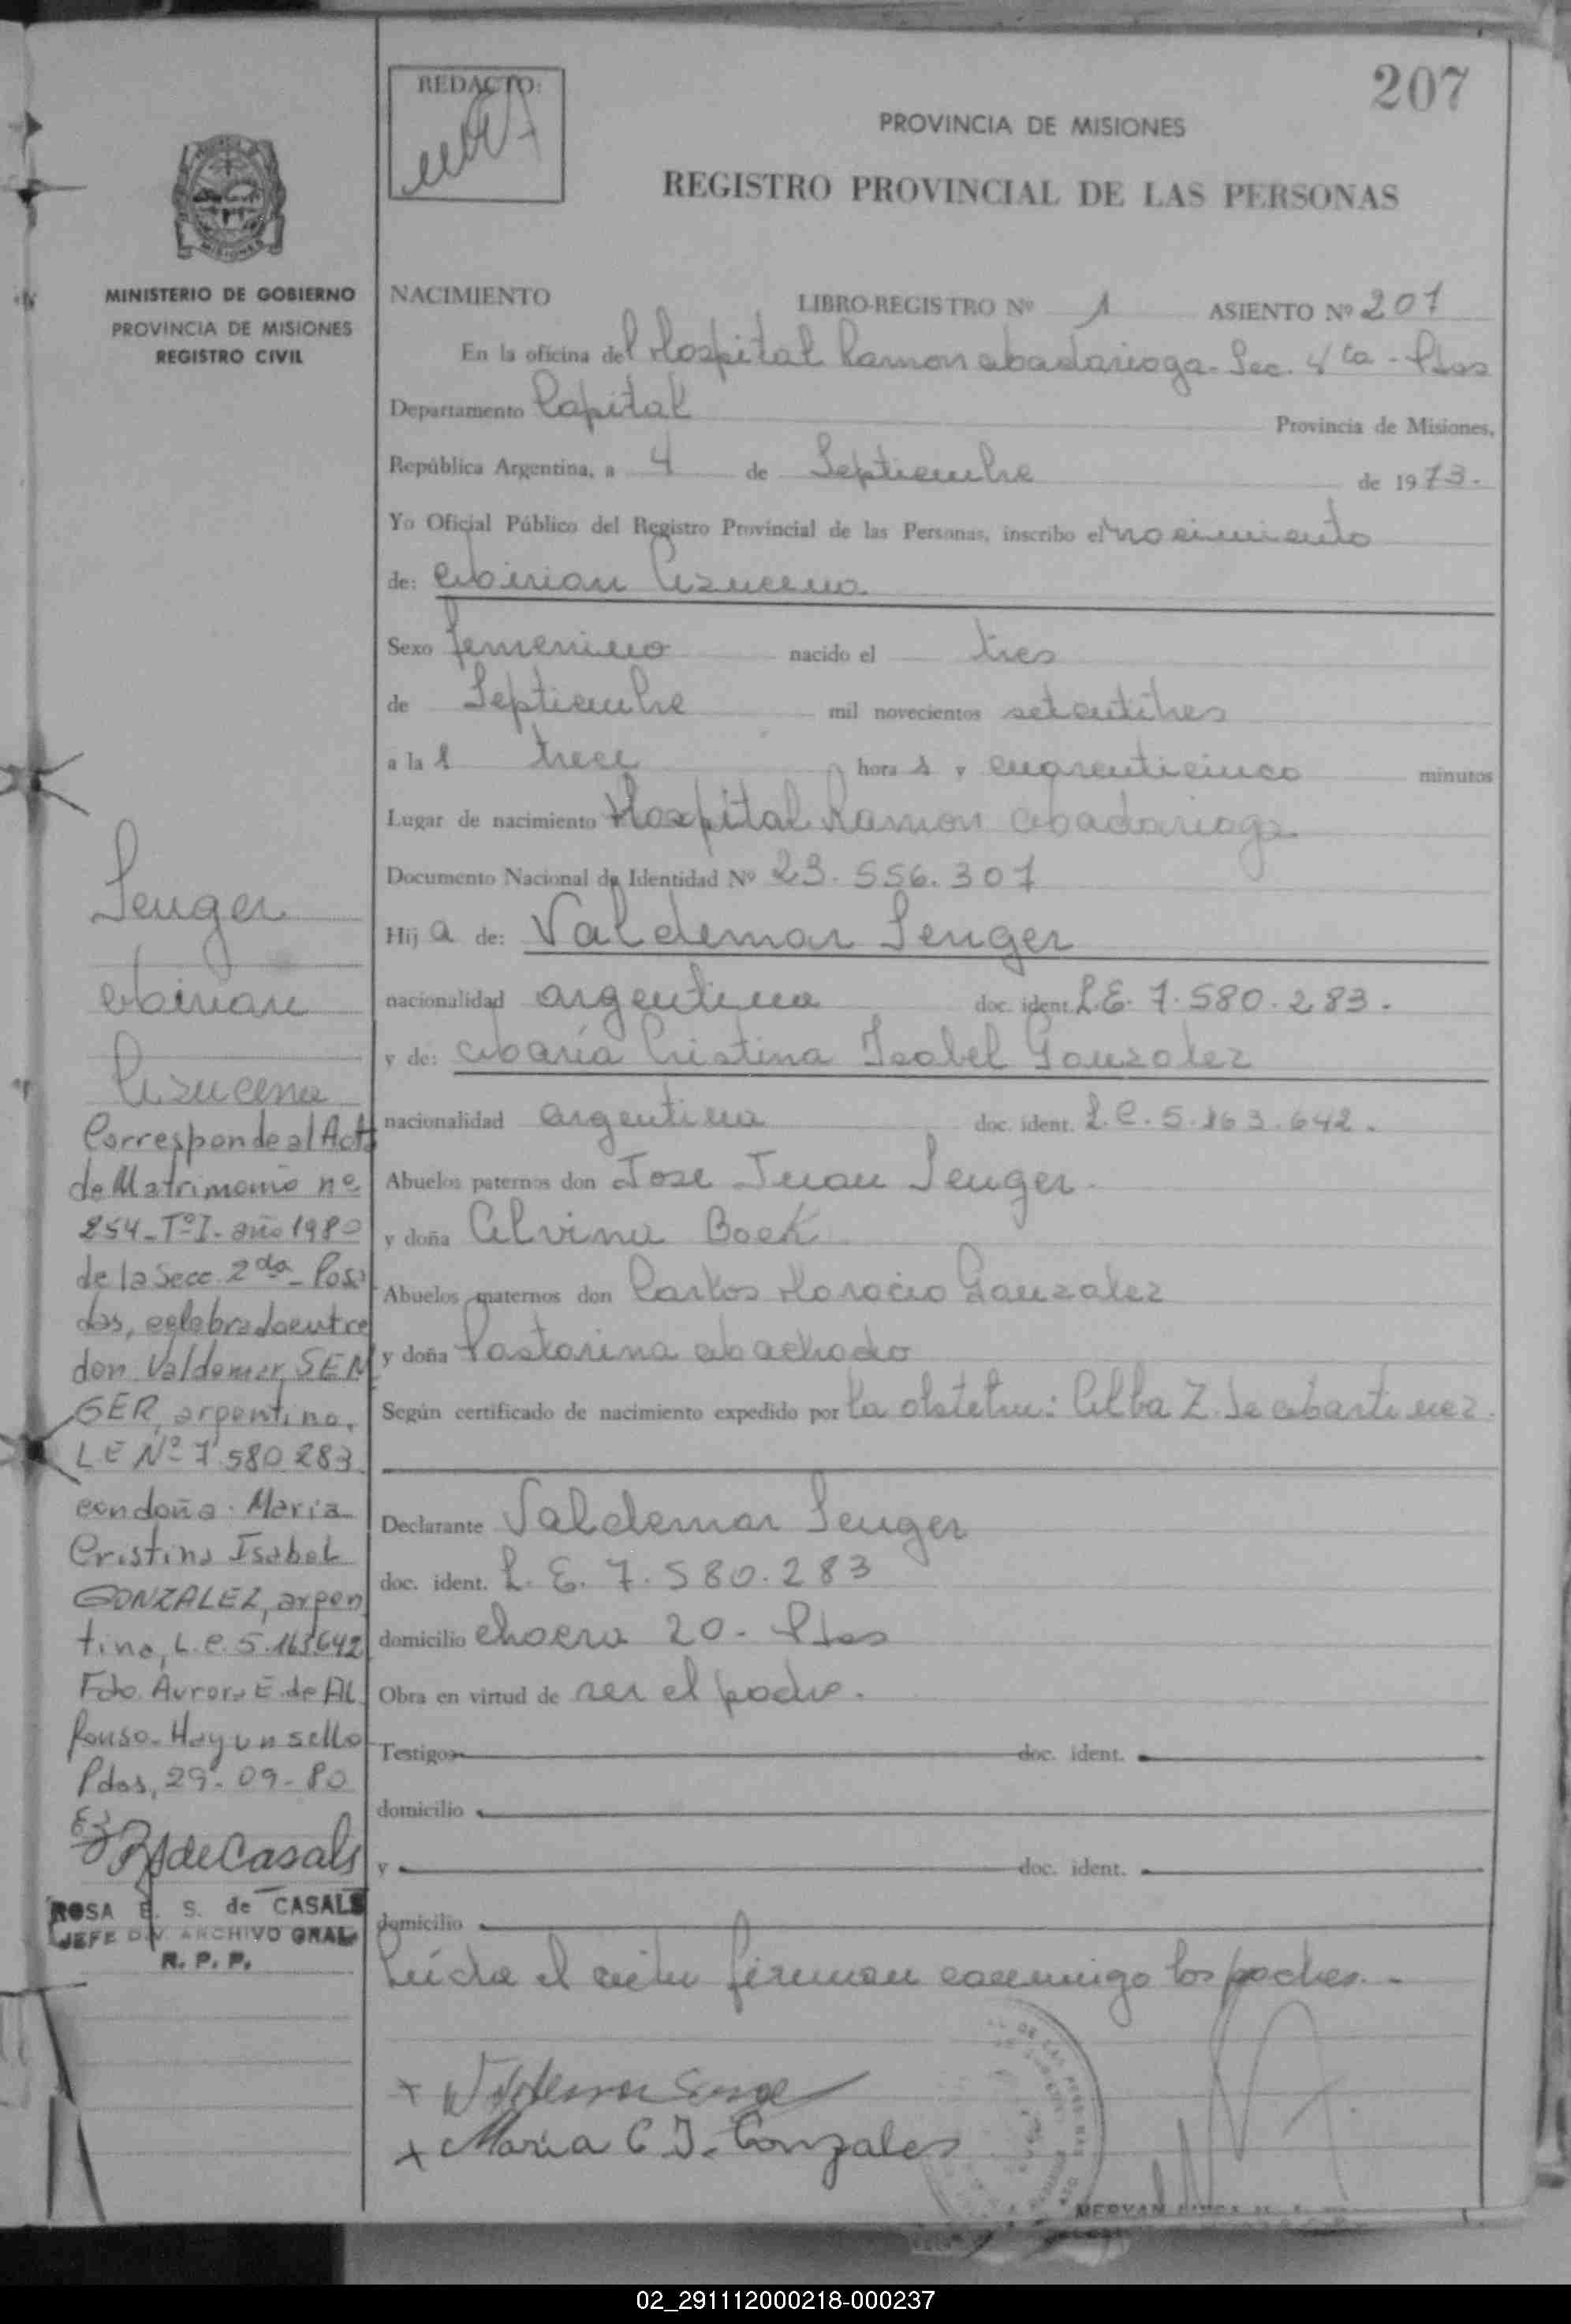 207
REDACTO:
PROVINCIA DE MISIONES
REGISTRO PROVINCIAL DE LAS PERSONAS
MISIONES
MINISTERIO DE GOBIERNO
PROVINCIA DE MISIONES
REGISTRO CIVIL
NACIMIENTO LIBRO-REGISTRO Nº 1 ASIENTO Nº 207
En la oficina del Hospital Ramon Madariaga - Sec. 4ta - Pdas
Departamento Capital Provincia de Misiones,
República Argentina, a 4 de Septiembre de 1973.
Yo Oficial Público del Registro Provincial de las Personas, inscribo el nacimiento
de: Mirian Azucena
Sexo femenino nacido el tres
de Septiembre mil novecientos setentitres
a la s trece hora s y cuarenticinco minutos
Lugar de nacimiento Hospital Ramon Madariaga
Documento Nacional de Identidad Nº 23.556.307
Hij a de: Valdemar Senger
nacionalidad argentina doc. ident. L.E. 7.580.283.
y de: María Cristina Isabel Gonzalez
nacionalidad argentina doc. ident. L.C. 5.163.642.
Abuelos paternos don Jose Juan Senger.
y doña Alvina Boek
Abuelos maternos don Carlos Horacio Gonzalez
y doña Pastorina Machado
Según certificado de nacimiento expedido por la obstetra: Alba Z. de Martinez.
Declarante Valdemar Senger
doc. ident. L.E. 7.580.283
domicilio chacra 20. Pdas
Obra en virtud de ser el padre.
Testigos doc. ident.
domicilio
y doc. ident.
domicilio
Leída el acta firman conmigo los padres.-
+ Valdemar Senger
+ Maria C I. Gonzales
Senger
Mirian
Azucena
Corresponde al Acta
de Matrimonio nº
254-TºI-año 1980
de la Secc. 2da - Posa
das, celebrado entre
don Valdemar SEN
GER, argentino,
LE Nº 7.580.283
con doña María
Cristina Isabel
GONZALEZ, argen
tina, L.C. 5.163.642
Fdo. Aurora E. de Al
fonso. Hay un sello
Pdas, 29-09-80
de Casals
ROSA E. S. de CASALS
JEFE DIV. ARCHIVO GRAL
R. P. P.
02_291112000218-000237